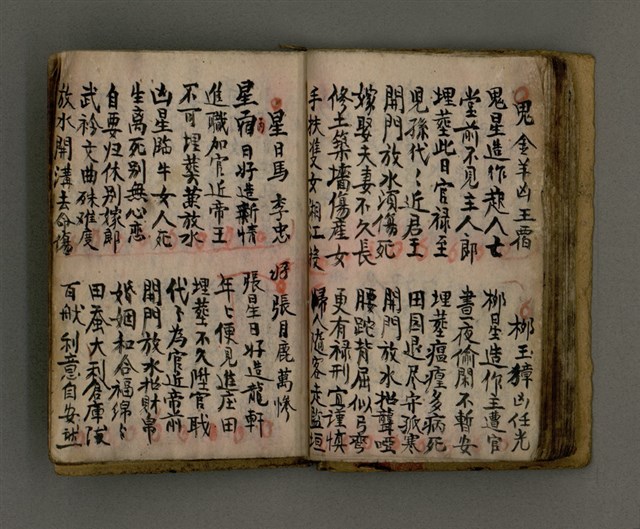 鬼金羊凶王霸
鬼星造作起人亡
堂前不見主人郎
埋葬此日官禄至
兒孫代〻近君王
開門放水須傷死
嫁娶夫妻不久長
修土築墻傷産女
手扶隻女淚江
柳土獐凶任光
柳星造作主遭官
晝夜偷閑不暫安
埋葬瘟瘟多病死
田園退尽守孤寒
開門放水招聾啞
腰跎背屈似弓彎
更有禄刑宜謹慎
婦人隨客走盤垣
星日馬 李忠
星宿日好造新情
進職加官近帝王
不可埋葬并放水
凶星臨牛女人死
生离死别無心恋
自要归休别嫁郎
武衿文曲殊难度
放水開溝去命傷
好 張月鹿萬修
張星日好造龍軒
年〻便見進庄田
埋葬不久陞官職
代〻為官近帝前
開門放水招財帛
婚姻和合福綿〻
田蚕大利倉庫滿
百般利意自安然